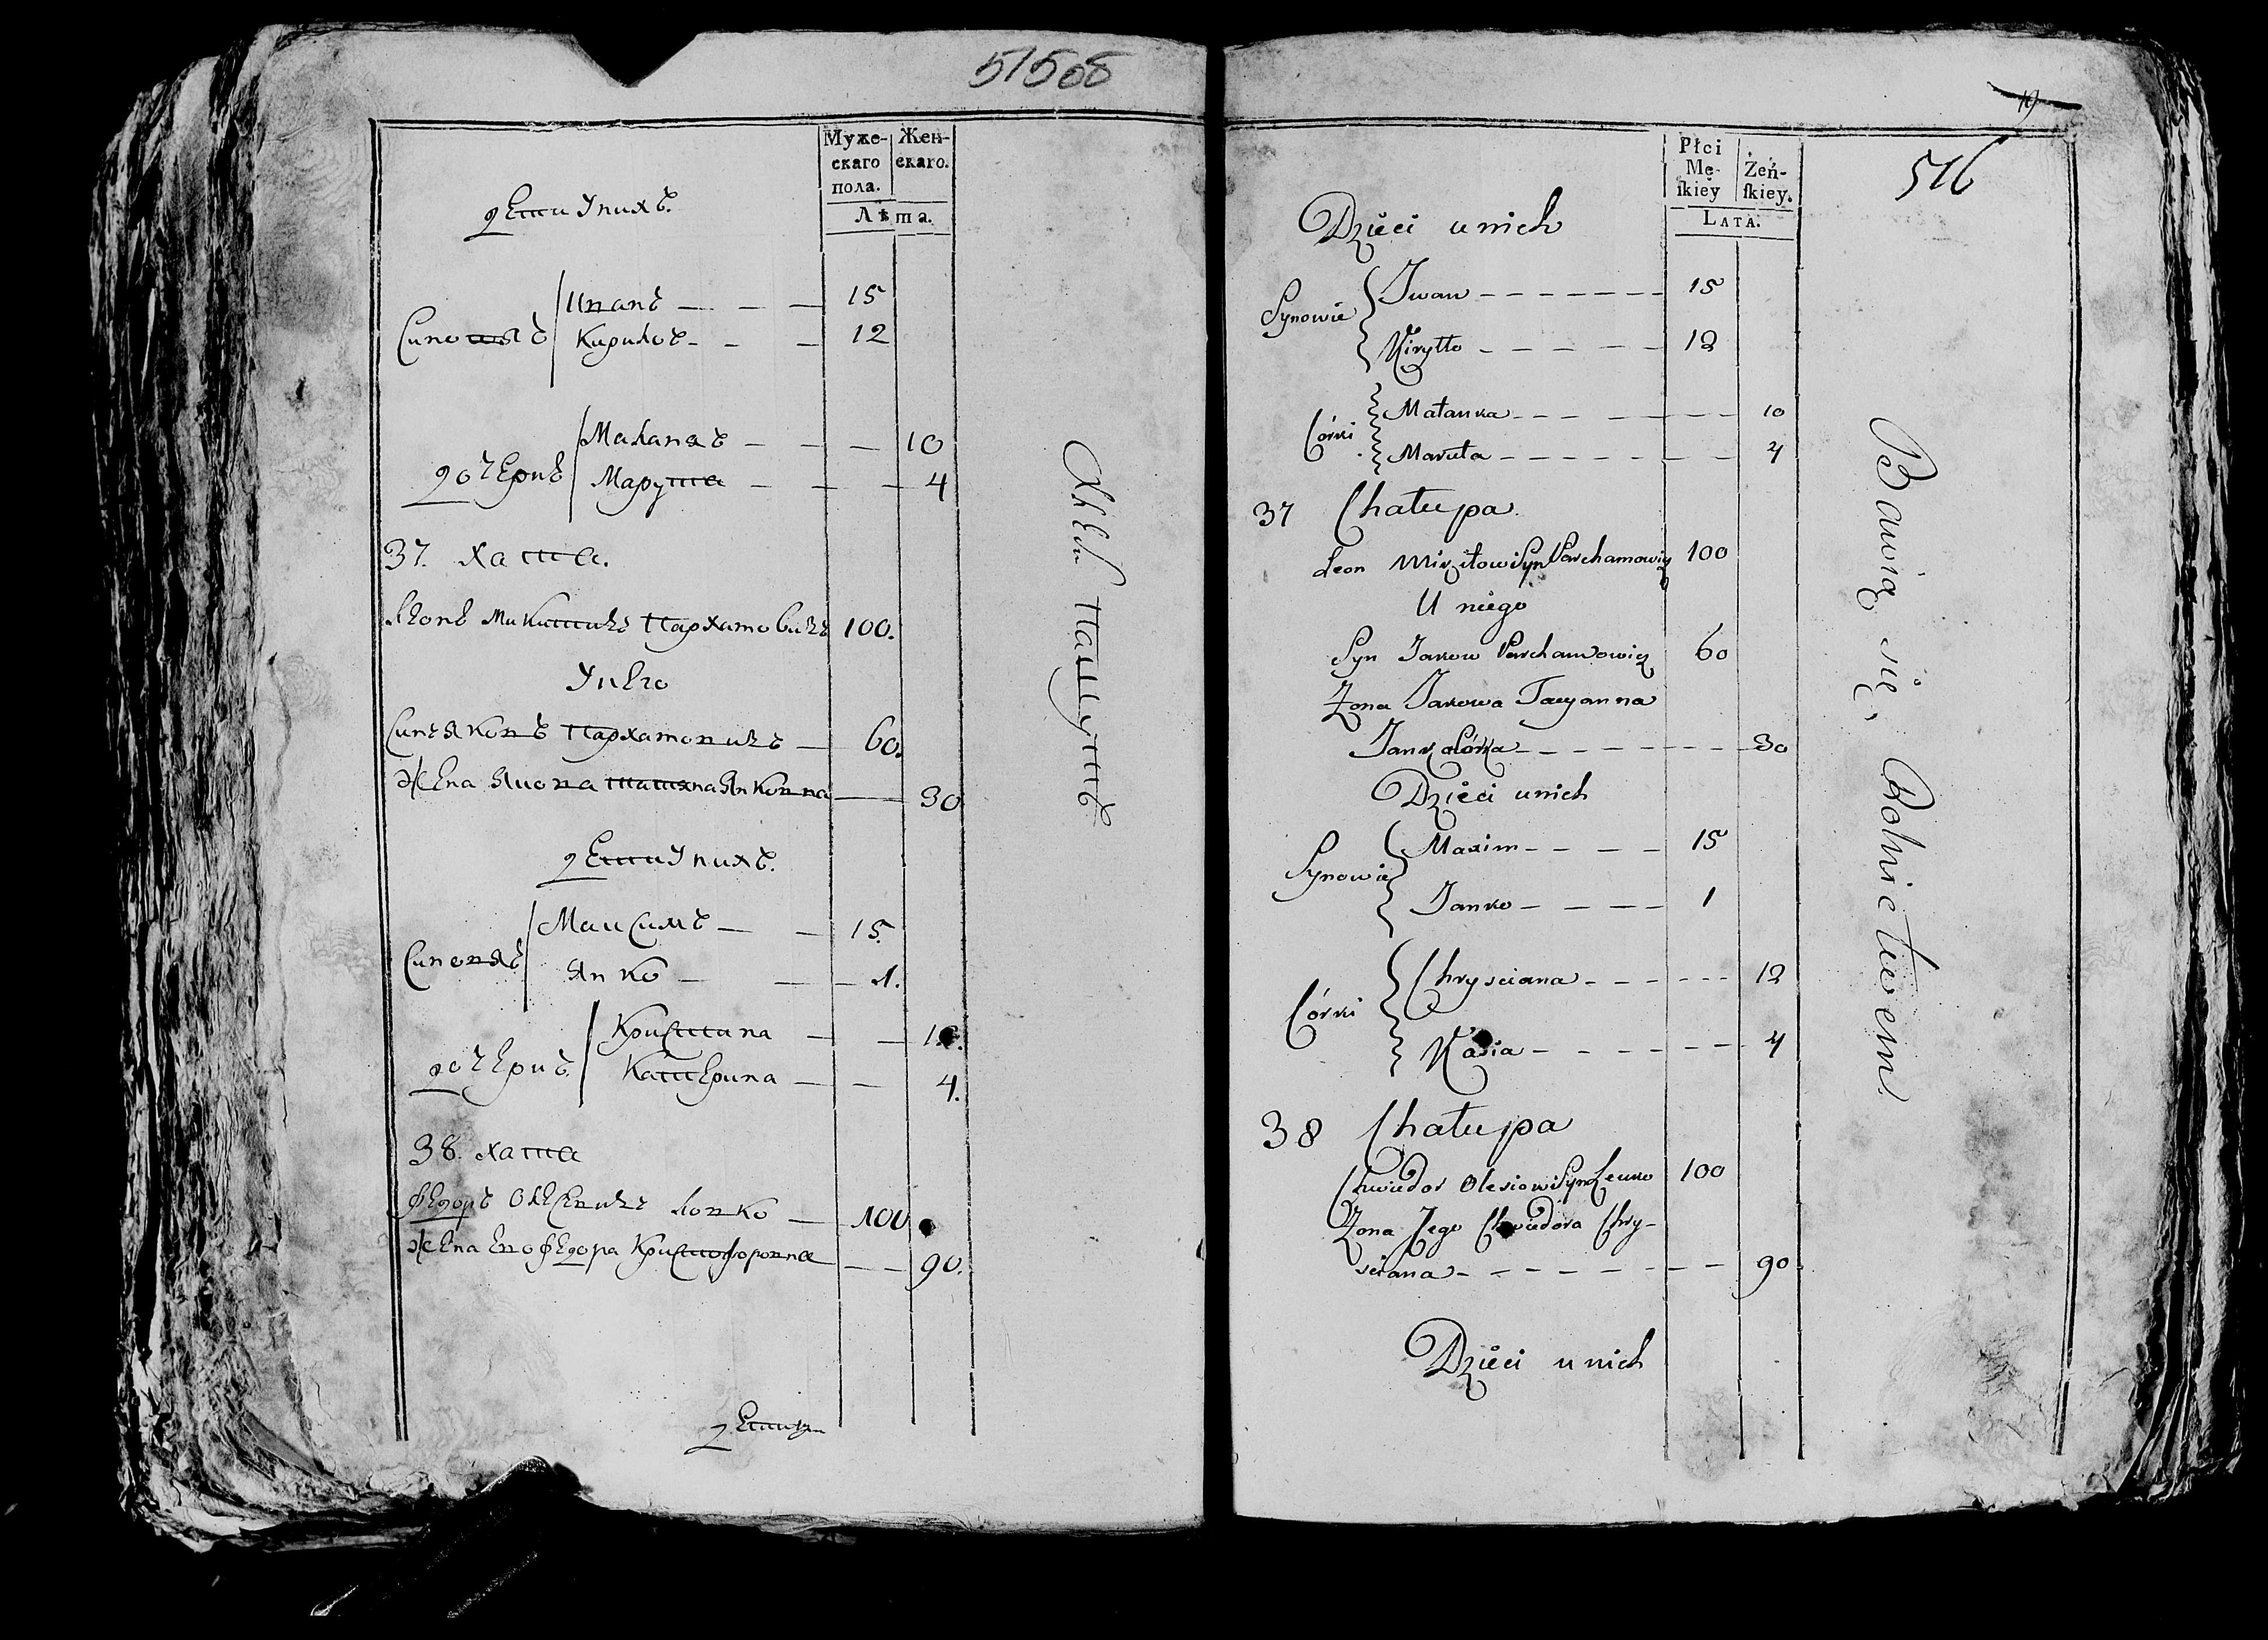 51508
Муже-
скаго
пола.
Жен-
скаго.
Лѣта.
дети Унихъ.
Синовяъ
Иванъ — — — 15
Кирилоъ — — — 12
дочеринъ
Маланяъ — — — 10
Марута — — — 4
37. хата.
Леонъ Микитичъ Пархамовичъ 100.
Унего
Синъ Яковъ Пархамовичъ — 60.
Жена Якова татяна Янковна — 30
дети Унихъ.
Синовяъ
Максимъ — — 15.
Янко — — — 1.
дочеринъ
Кристина — —
Катерина — — 4.
38. хата
Федоръ Олесевичъ Ловко — 100
Жена Ево Федора Кристофоровна — — 90.
Хлебъ Пашутъ
19
516
Płci
Mę-
ſkiey
Żeń-
ſkiey.
LATA.
Dzieci u nich
Synowie
Iwan — — — 15
Kiryłło — — — 12
Córki
Małanka — — — 10
Maruta — — — 4
37 Chałupa
Leon Mirzitowi Syn Parchamowicz 100
U niego
Syn Jakow Parchamowicz 60
Żona Jakowa Tacyanna
Janka Córka — — — 30
Dzieci u nich
Synowie
Maxim — — — 15
Janko — — — 1
Córki
Chrysciana — — — 12
Kasia — — — 4
38 Chałupa
Chwiedor Olesiowi Syn Lewko 100
Żona Jego Chwiedora Chry-
sciana — — — 90
Dzieci u nich
Bawią się, Rolnictwem.